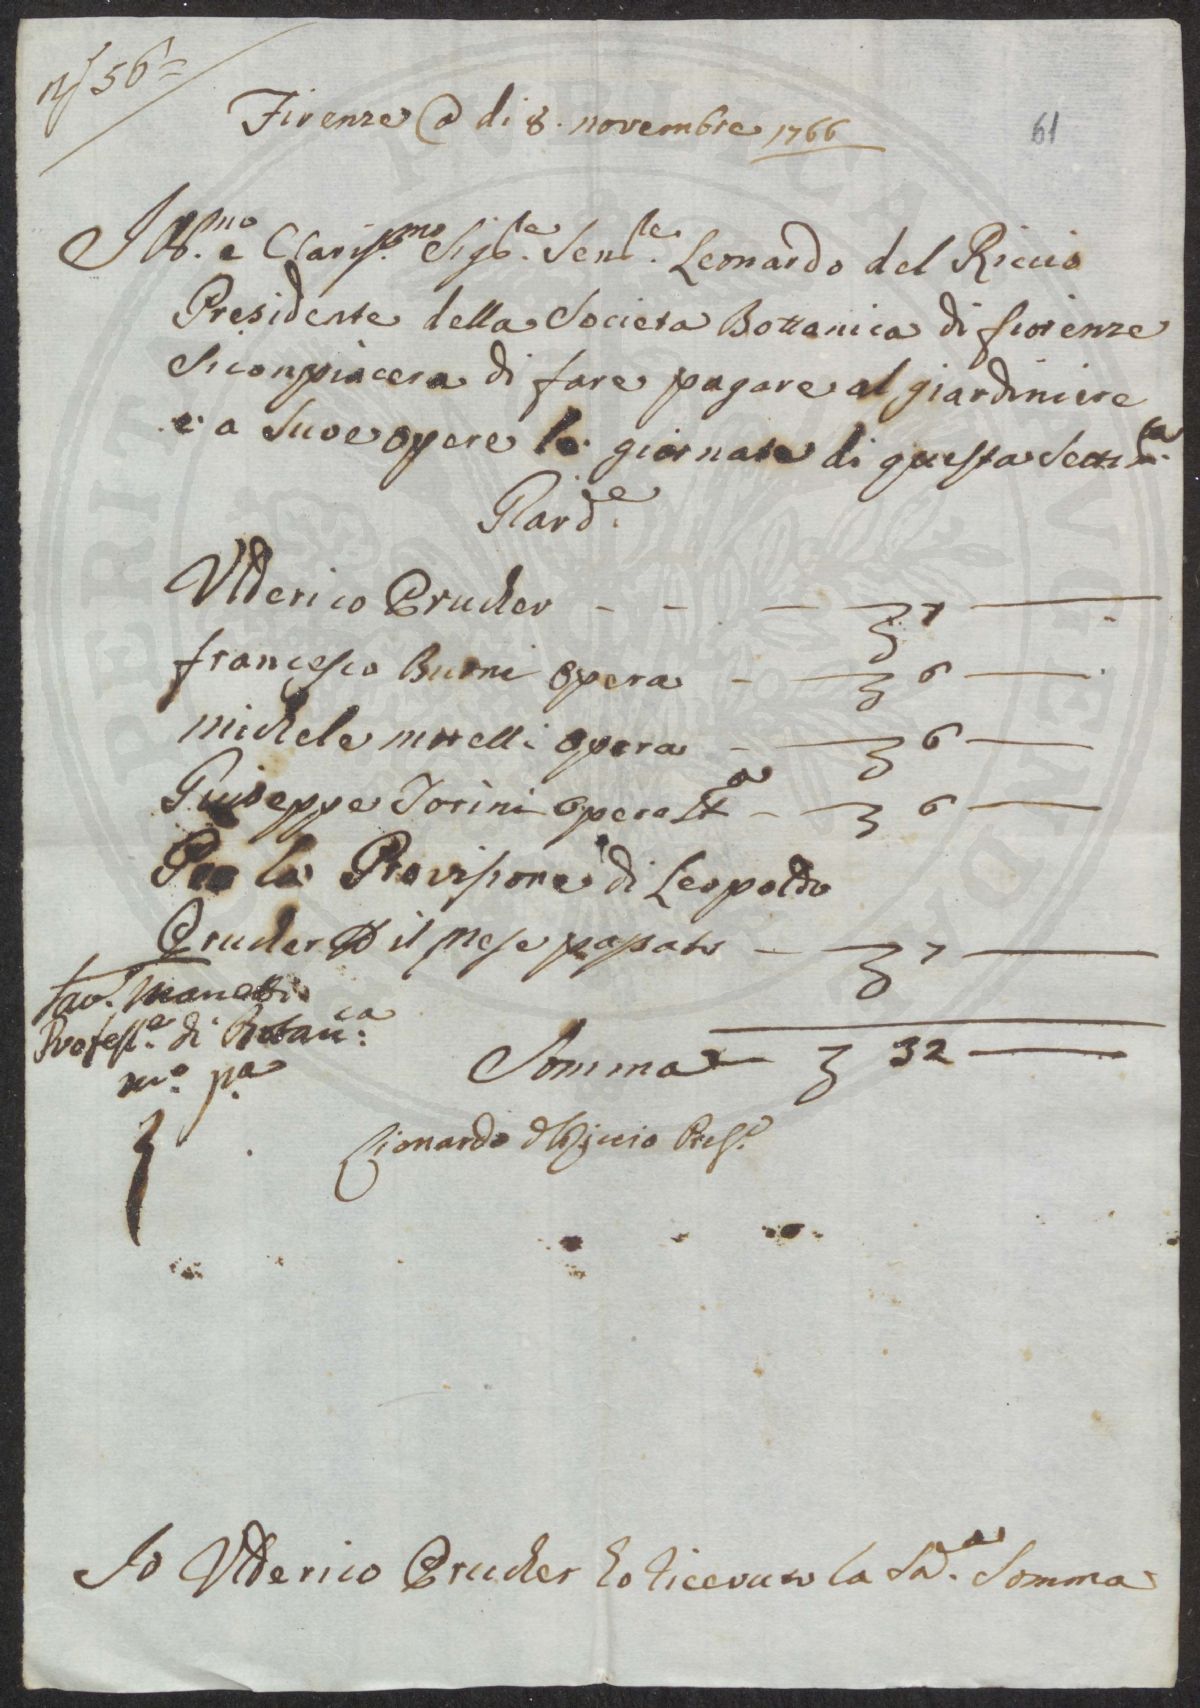 N 56=
Firenze @ di 8. novembre 1766
61
Ill.mo e Clariss.mo Sig.re Sen.re Leonardo del Riccio
Presidente della Societa Bottanica di fiorenze
Si conpiacera di fare pagare al giardiniere
e a Sue opere le giornate di questa Setti.na
Giard.e
Vlderico Prucher - - - 7
francesco Burni opera - 6
michele morelli opera - 6
Guiseppe Torini opera - 6
Per la Provisione di Leopoldo
Prucher il Mese passato - 7
Sav. Manetti
Profess.e di Botan.ca
m.o p.a
Somma 32
Lionardo del Riccio Pres.e
Io Vlderico Prucher ho ricevuto la Sud.a Somma